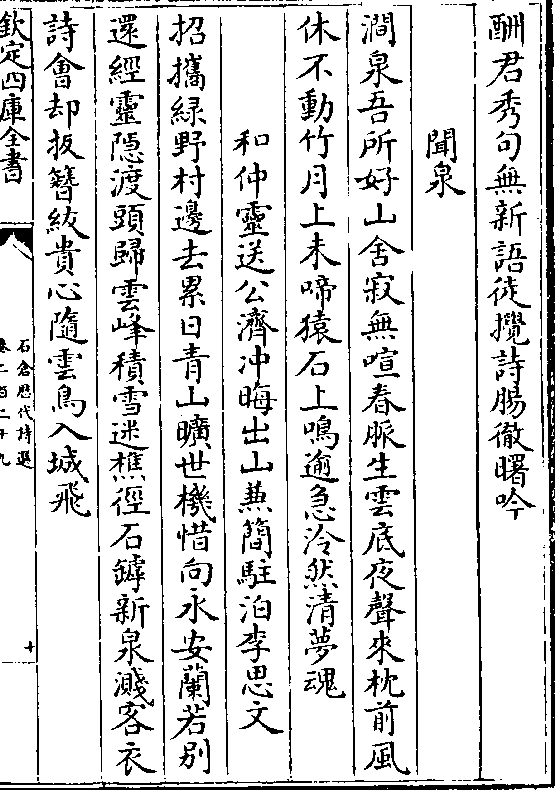 酬君秀句無新語徒攪詩腸徹曙吟
聞泉
澗泉吾所好山舍寂無喧春脈生雲底夜聲來枕前風
休不動竹月上未啼猿石上鳴逾急泠然清夢魂
和仲靈送公濟冲晦出山蕪簡駐泊李思文
招攜緑野村邊去累日青山曠世機惜向永安蘭若别
還經靈隠渡頭歸雲峰積雪迷樵徑石罅新泉濺客衣
詩會却扳簪紱貴心隨雲鳥入城飛
欽定四庫全書
石倉歷代詩選
卷二百二十九
十